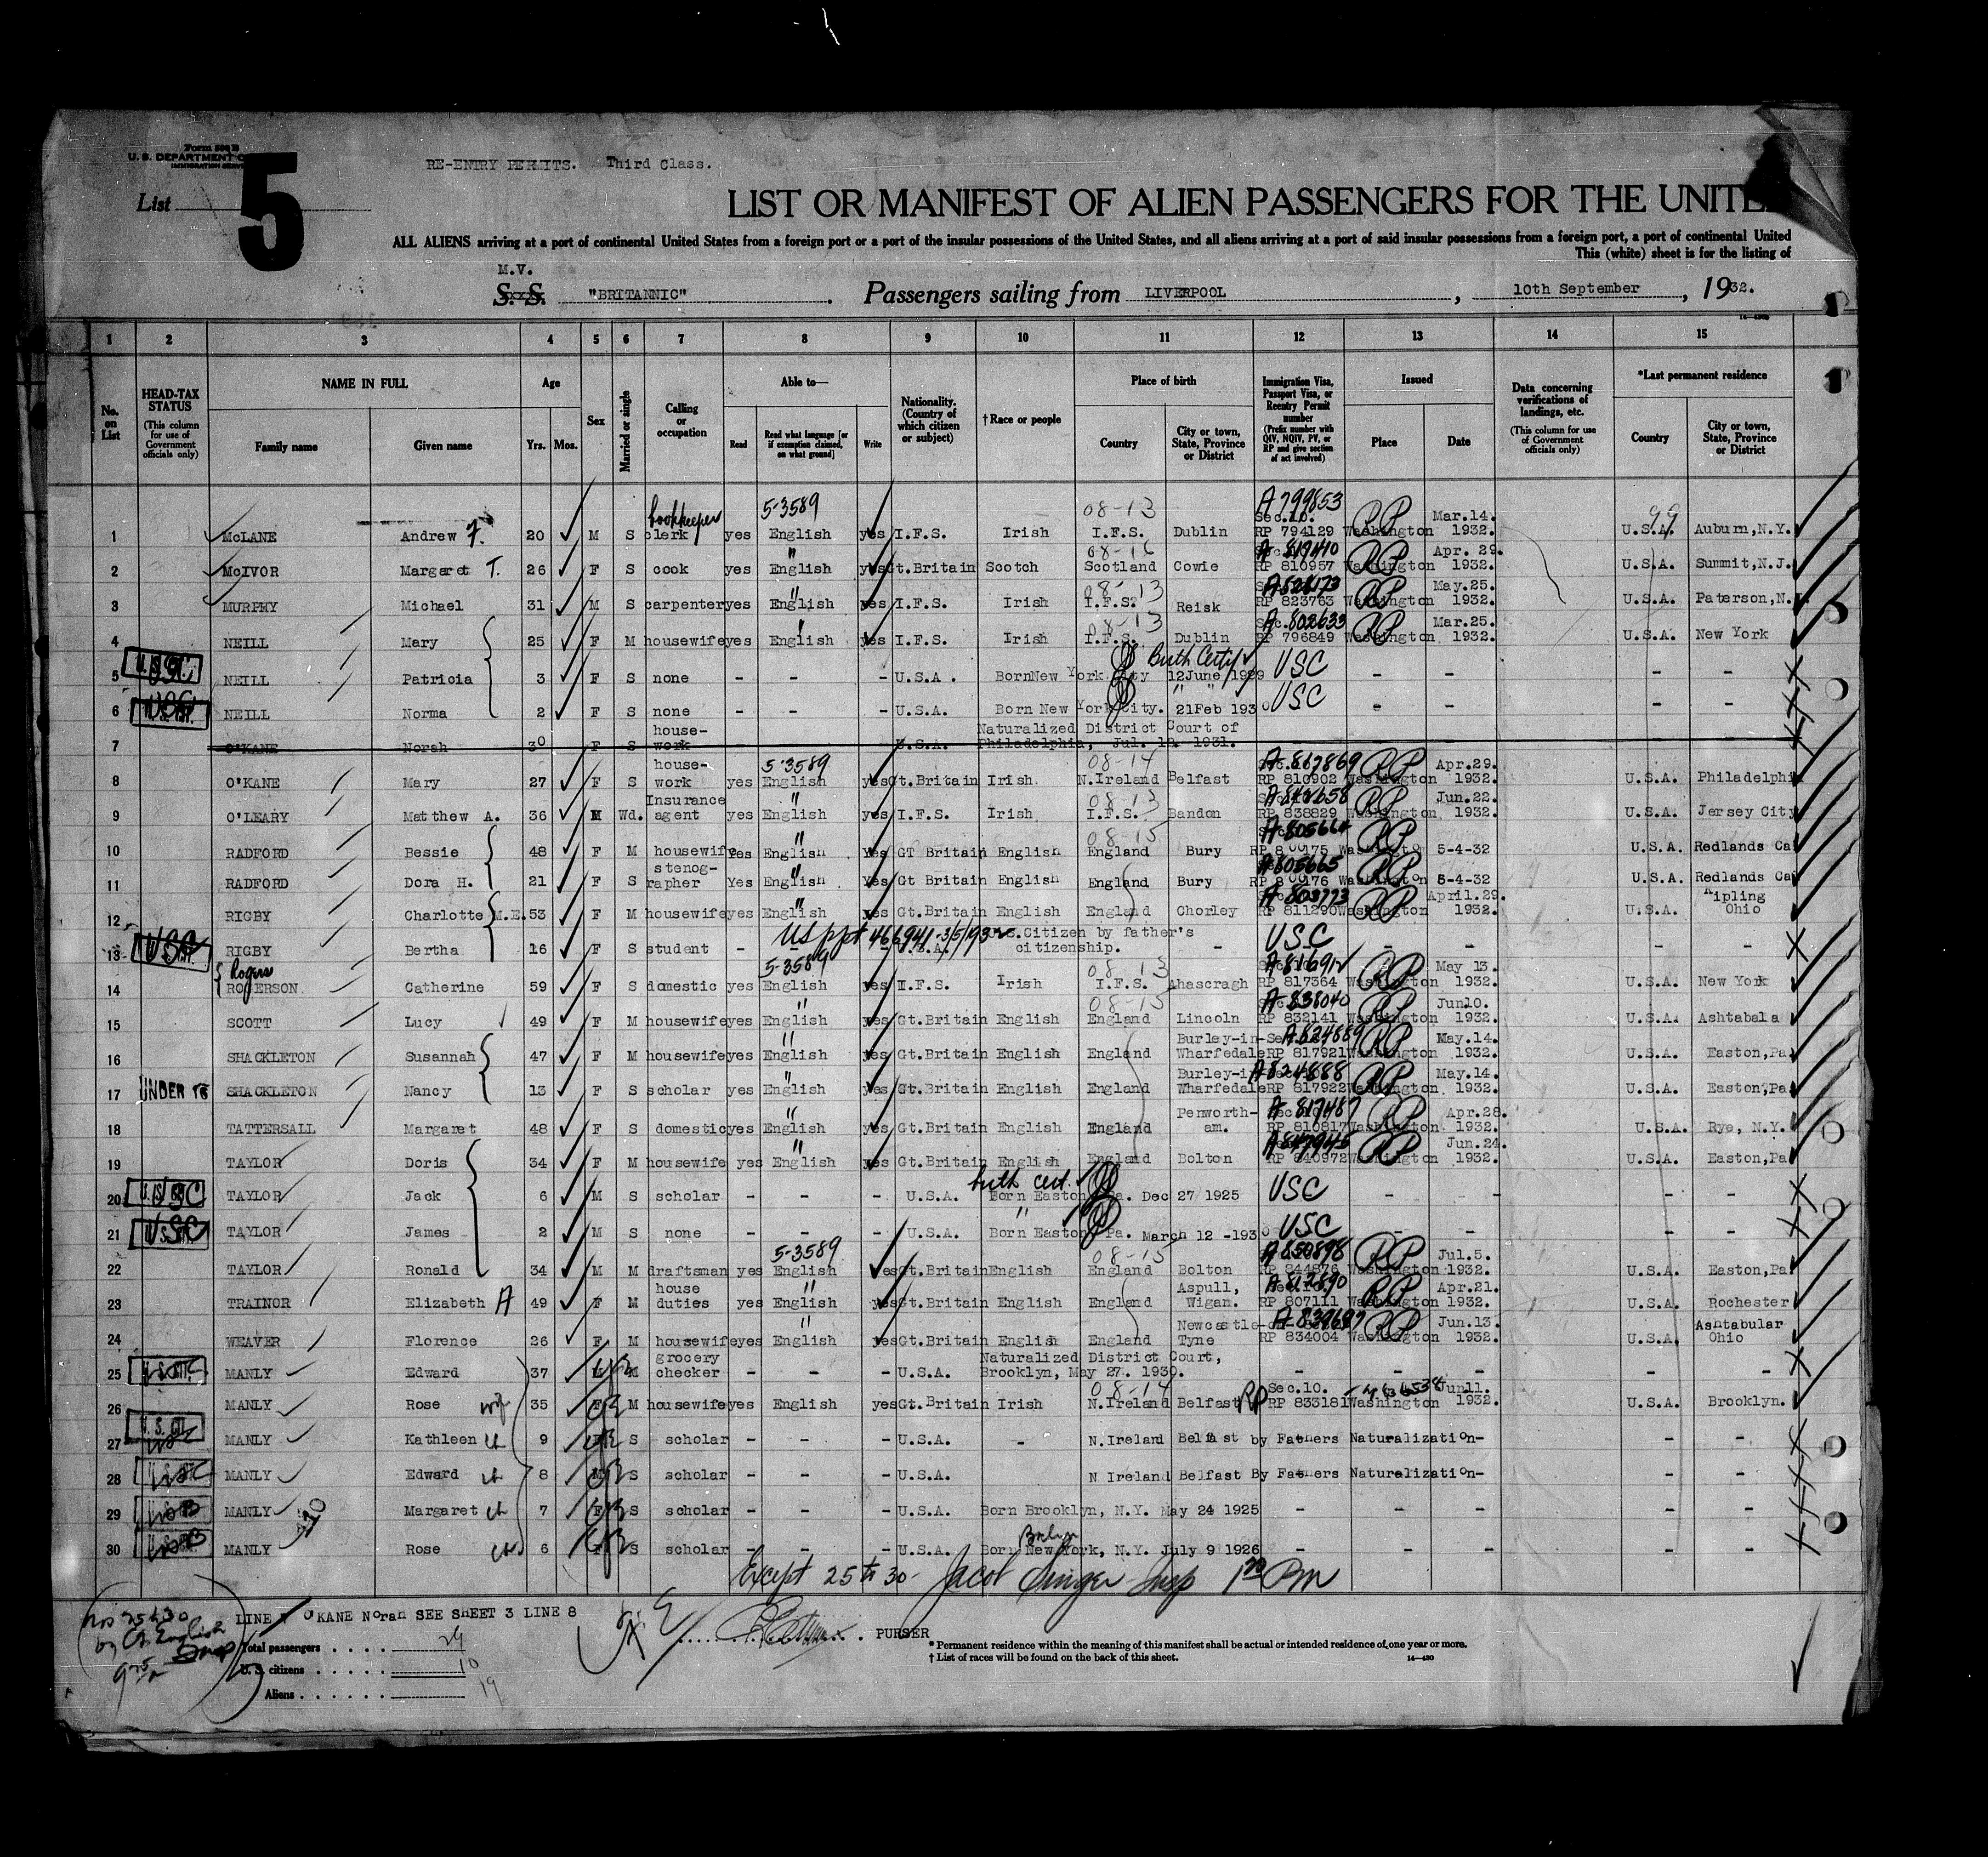 Form 500 B
U. S. DEPARTMENT O
IMMIGRATION SERV
RE-ENTRY PERMITS. Third Class.
List 5
LIST OR MANIFEST OF ALIEN PASSENGERS FOR THE UNITE
ALL ALIENS arriving at a port of continental United States from a foreign port or a port of the insular possessions of the United States, and all aliens arriving at a port of said insular possessions from a foreign port, a port of continental United
This (white) sheet is for the listing of
M.V.
S. S. "BRITANNIC" Passengers sailing from LIVERPOOL, 10th September, 1932.
1 2 3 4 5 6 7 8 9 10 11 12 13 14 15
No. on List
HEAD-TAX STATUS (This column for use of Government officials only)
NAME IN FULL
Family name Given name
Age
Yrs. Mos.
Sex
Married or single
Calling or occupation
Able to—
Read Read what language [or if exemption claimed, on what ground] Write
Nationality. (Country of which citizen or subject)
†Race or people
Place of birth
Country City or town, State, Province or District
Immigration Visa, Passport Visa, or Reentry Permit number (Prefix number with QIV, NQIV, PV, or RP and give section of act involved)
Issued
Place Date
Data concerning verifications of landings, etc. (This column for use of Government officials only)
*Last permanent residence
Country City or town, State, Province or District
bookkeeper 5-3589 08-13 A799853 99
1 McLANE Andrew F. 20 M S clerk yes English yes I.F.S. Irish I.F.S. Dublin Sec.10. RP 794129 Washington RP Mar.14. 1932. U.S.A. Auburn,N.Y.
" 08-16 A819410
2 McIVOR Margaret T. 26 F S cook yes English yes Gt.Britain Scotch Scotland Cowie RP 810957 Washington RP Apr. 29. 1932. U.S.A. Summit,N.J.
" 08-13
3 MURPHY Michael 31 M S carpenter yes English yes I.F.S. Irish I.F.S. Reisk RP 823763 Washington RP May.25. 1932. U.S.A. Paterson,N.
" 08-13 A802633
4 NEILL Mary 25 F M housewife yes English yes I.F.S. Irish I.F.S. Dublin RP 796849 Washington RP Mar.25. 1932. U.S.A. New York
Birth Certf
5 USC NEILL Patricia 3 F S none - - - U.S.A. Born New York City 12June/1929 USC - - - -
" "
6 USC NEILL Norma 2 F S none - - - U.S.A. Born New York City. 21Feb 1930 USC - - - -
7 O'KANE Norah 30 F S house-work U.S.A. Naturalized District Court of Philadelphia, Jul. 1931.
5-3589 08-14 A817869
8 O'KANE Mary 27 F S house-work yes English yes Gt.Britain Irish N.Ireland Belfast RP 810902 Washington RP Apr.29. 1932. U.S.A. Philadelphi
" 08-13 A842658
9 O'LEARY Matthew A. 36 M Wd. Insurance agent yes English yes I.F.S. Irish I.F.S. Bandon RP 838829 Washington RP Jun.22. 1932. U.S.A. Jersey City
" 08-15 A805664
10 RADFORD Bessie 48 F M housewife Yes English Yes GT Britain English England Bury RP 800175 Washington RP 5-4-32 U.S.A. Redlands Ca
" A805665
11 RADFORD Dora H. 21 F S stenographer Yes English Yes Gt Britain English England Bury RP 800176 Washington RP 5-4-32 U.S.A. Redlands Ca
"
12 RIGBY Charlotte M.E. 53 F M housewife yes English yes Gt.Britain English England Chorley RP 811290 Washington RP April.29. 1932. U.S.A. Kipling Ohio
US ppt 466941-3/5/1932
13 USC RIGBY Bertha 16 F S student - U.S.A. U.S.Citizen by father's citizenship. - USC - - - -
Rogers 5-3589 08-13 A816912
14 ROGERSON Catherine 59 F S domestic yes English yes I.F.S. Irish I.F.S. Ahascragh RP 817364 Washington RP May 13. 1932. U.S.A. New York
" 08-15 A838040
15 SCOTT Lucy 49 F M housewife yes English yes Gt.Britain English England Lincoln RP 832141 Washington RP Jun10. 1932. U.S.A. Ashtabala
" A824889
16 SHACKLETON Susannah 47 F M housewife yes English yes Gt.Britain English England Burley-in-Wharfedale RP 817921 Washington RP May.14. 1932. U.S.A. Easton,Pa
" A824888
17 UNDER 16 SHACKLETON Nancy 13 F S scholar yes English yes Gt.Britain English England Burley-in Wharfedale RP 817922 Washington RP May.14. 1932. U.S.A. Easton,Pa
" A817487
18 TATTERSALL Margaret 48 F S domestic yes English yes Gt.Britain English England Penworth-am. RP 810817 Washington RP Apr.28. 1932. U.S.A. Rye, N.Y.
" A847946
19 TAYLOR Doris 34 F M housewife yes English yes Gt.Britain English England Bolton RP 840972 Washington RP Jun.24. 1932. U.S.A. Easton,Pa
birth cert.
20 USC TAYLOR Jack 6 M S scholar - - - U.S.A. Born Easton Pa. Dec 27 1925 USC - - - -
"
21 USC TAYLOR James 2 M S none - - - U.S.A. Born Easton Pa. March 12 -1930 USC - - - -
5-3589 08-15 A850898
22 TAYLOR Ronald 34 M M draftsman yes English Yes Gt.Britain English England Bolton RP 844876 Washington RP Jul.5. 1932. U.S.A. Easton,Pa
" A812890
23 TRAINOR Elizabeth A 49 F M house duties yes English yes Gt.Britain English England Aspull, Wigan. RP 807111 Washington RP Apr.21. 1932. U.S.A. Rochester
" A839697
24 WEAVER Florence 26 F M housewife yes English yes Gt.Britain English England Newcastle-on Tyne RP 834004 Washington RP Jun.13. 1932. U.S.A. Ashtabular Ohio
25 MANLY Edward 37 M M grocery checker - - - U.S.A. Naturalized District Court, Brooklyn, May 27. 1930. - - - - -
08-14
26 MANLY Rose wife 35 F M housewife yes English yes Gt.Britain Irish N.Ireland Belfast RP Sec.10. RP 833181 Washington Jun11. 1932. U.S.A. Brooklyn.
27 U.S. CIT. USC MANLY Kathleen ch 9 F S scholar - - - U.S.A. - N.Ireland Belfast by Fathers Naturalization- - -
28 USC MANLY Edward ch 8 M S scholar - - - U.S.A. N Ireland Belfast By Fathers Naturalization- - -
29 USB MANLY Margaret ch 7 F S scholar - - - U.S.A. Born Brooklyn, N.Y. May 24 1925 - - - - -
Bklyn
30 USB MANLY Rose ch 6 F S scholar - - - U.S.A. Born New York, N.Y. July 9 1926 - - - - -
Except 25 to 30 - Jacob Singer Insp Pm
nos 25 to 30
by English
Insp
LINE 7 O'KANE Norah SEE SHEET 3 LINE 8
Total passengers . . . . 29
U. S. citizens . . . . . 10
Aliens . . . . . . 19
PURSER
* Permanent residence within the meaning of this manifest shall be actual or intended residence of one year or more.
† List of races will be found on the back of this sheet. 14—430